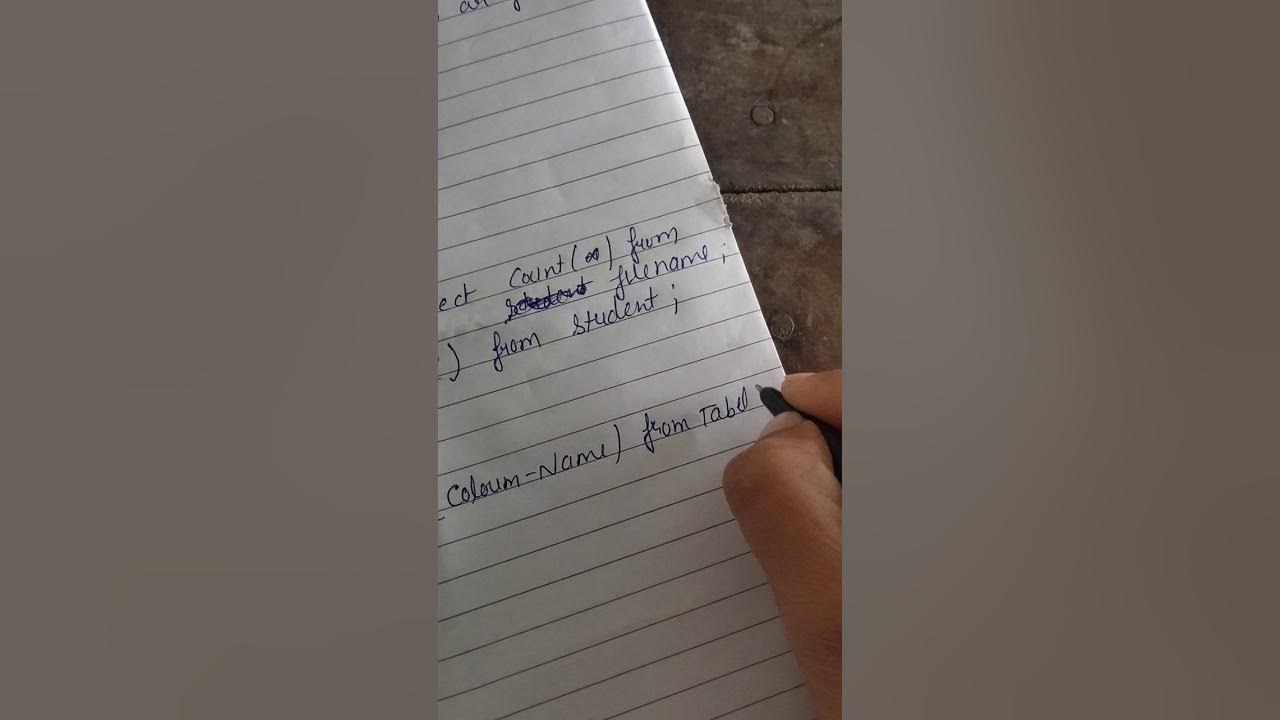 ect Count(*) from
filename;
) from student;
Coloum-Name) from Tabel